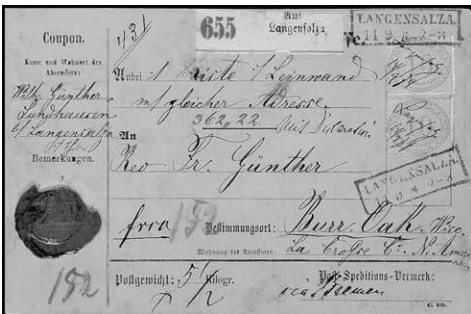 Coupon.
Name und Wohnort des
Absenders:
Wilh. Günther
Sundhausen
b/ Langensalza
Bemerkungen.
152
431
655
Aus
Langensalza
LANGENSALZA.
11 9 6-2-3
Anbei 1 Kiste i/ Leinwand
m/ gleicher Adresse.
362, 22
An
Rev Fr. Günther
LANGENSALZA
frco
152
Bestimmungsort: Burr Oak Wisc.
Wohnung des Adressaten:
La Crosse Ct. N. Amer
Postgewicht: 5 1/2 Kilogr.
Post-Speditions-Vermerk:
via Bremen
C. 80.